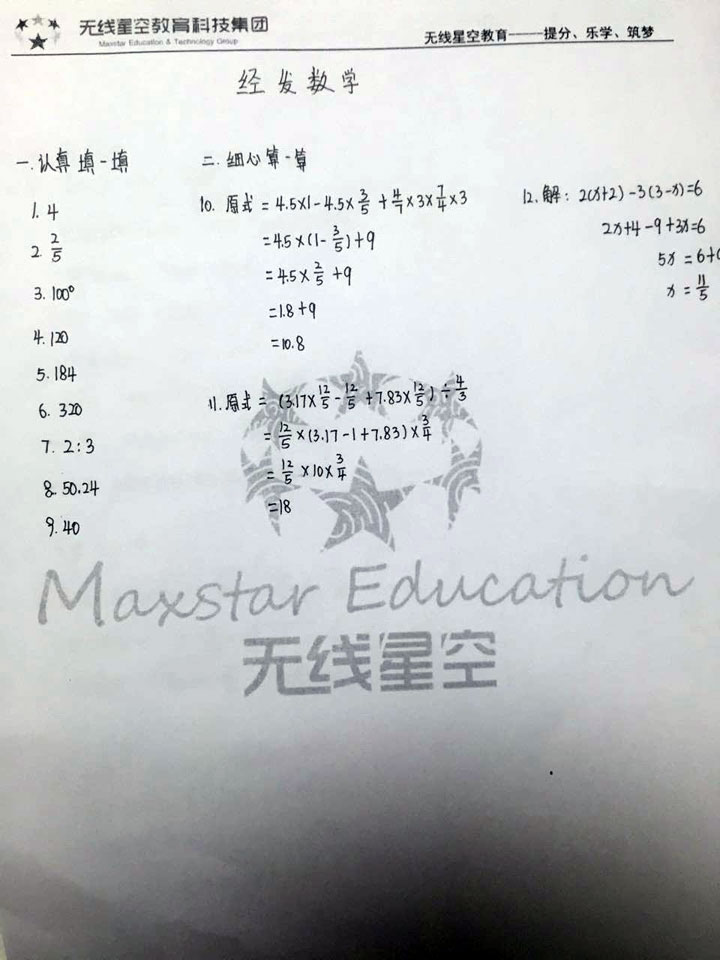 无线星空教育科技集团
Maxstar Education & Technology Group
无线星空教育——提分、乐学、筑梦
经发数学
一.认真填一填
1. 4
2. 2/5
3. 100°
4. 120
5. 184
6. 320
7. 2:3
8. 50.24
9. 40
二.细心算一算
10. 原式 = 4.5×1-4.5×3/5+4/7×3×7/4×3
=4.5×(1-3/5)+9
=4.5×2/5+9
=1.8+9
=10.8
11. 原式 = (3.17×12/5-12/5+7.83×12/5)÷4/3
=12/5×(3.17-1+7.83)×3/4
=12/5×10×3/4
=18
12. 解: 2(x+2)-3(3-x)=6
2x+4-9+3x=6
5x=6+
x=11/5
Maxstar Education
无线星空